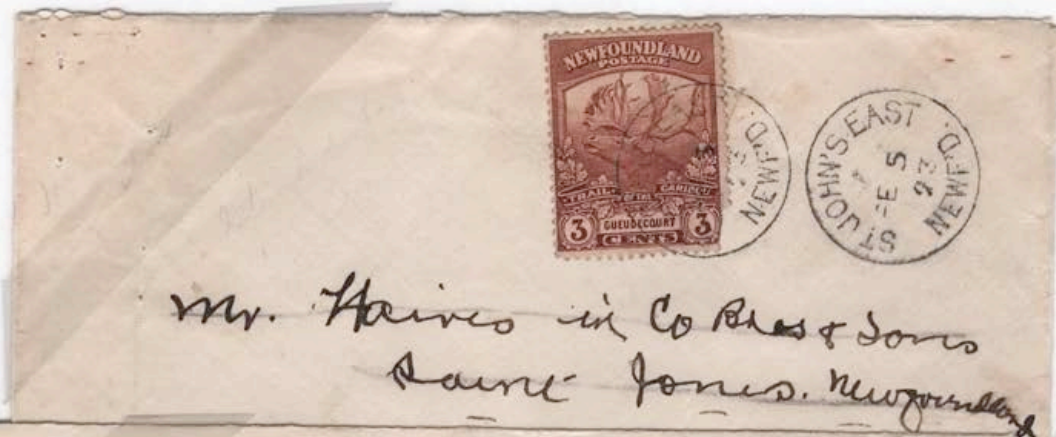 NEWFOUNDLAND
POSTAGE
TRAIL OF THE CARIBOU
3 GUEUDECOURT 3
CENTS
NEWF'D.
ST JOHN'S. EAST NEWF'D.
FE 5
23
Mr. in Co & Sons
Saint Jones. Newfoundland